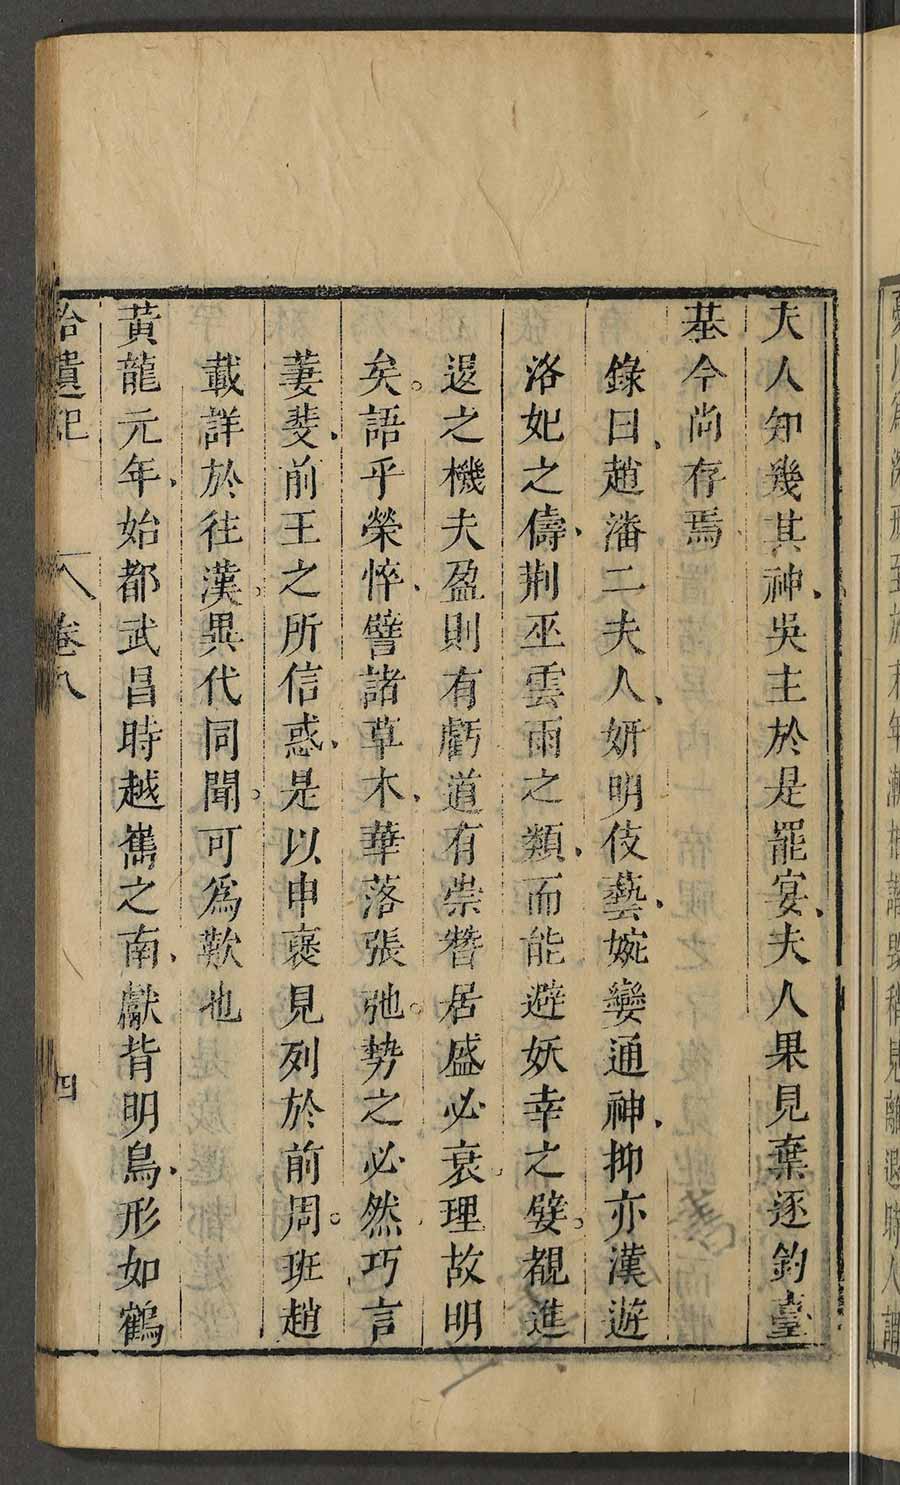 夫人知幾其神吳主於是罷宴夫人果見棄逐釣臺
基今尚存焉
錄曰趙潘二夫人妍明伎藝婉孌通神抑亦漢遊
洛妃之儔荆巫雲雨之類而能避妖幸之嬖覩進
退之機夫盈則有虧道有崇替居盛必衰理故明
矣語乎榮悴譬諸草木華落張弛勢之必然巧言
萋斐前王之所信惑是以申褒見列於前周班趙
載詳於往漢異代同聞可爲歎也
黃龍元年始都武昌時越嶲之南獻背明鳥形如鶴
拾遺記 卷八 四